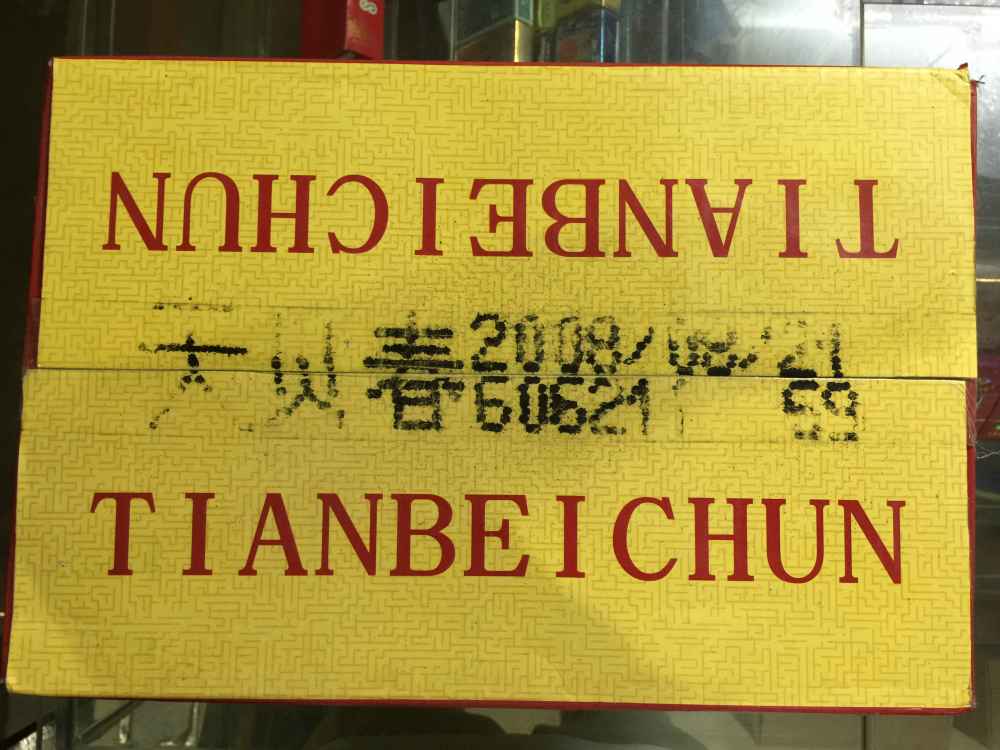 TIANBEICHUN
天贝春2008/08/21
60621 59
TIANBEICHUN